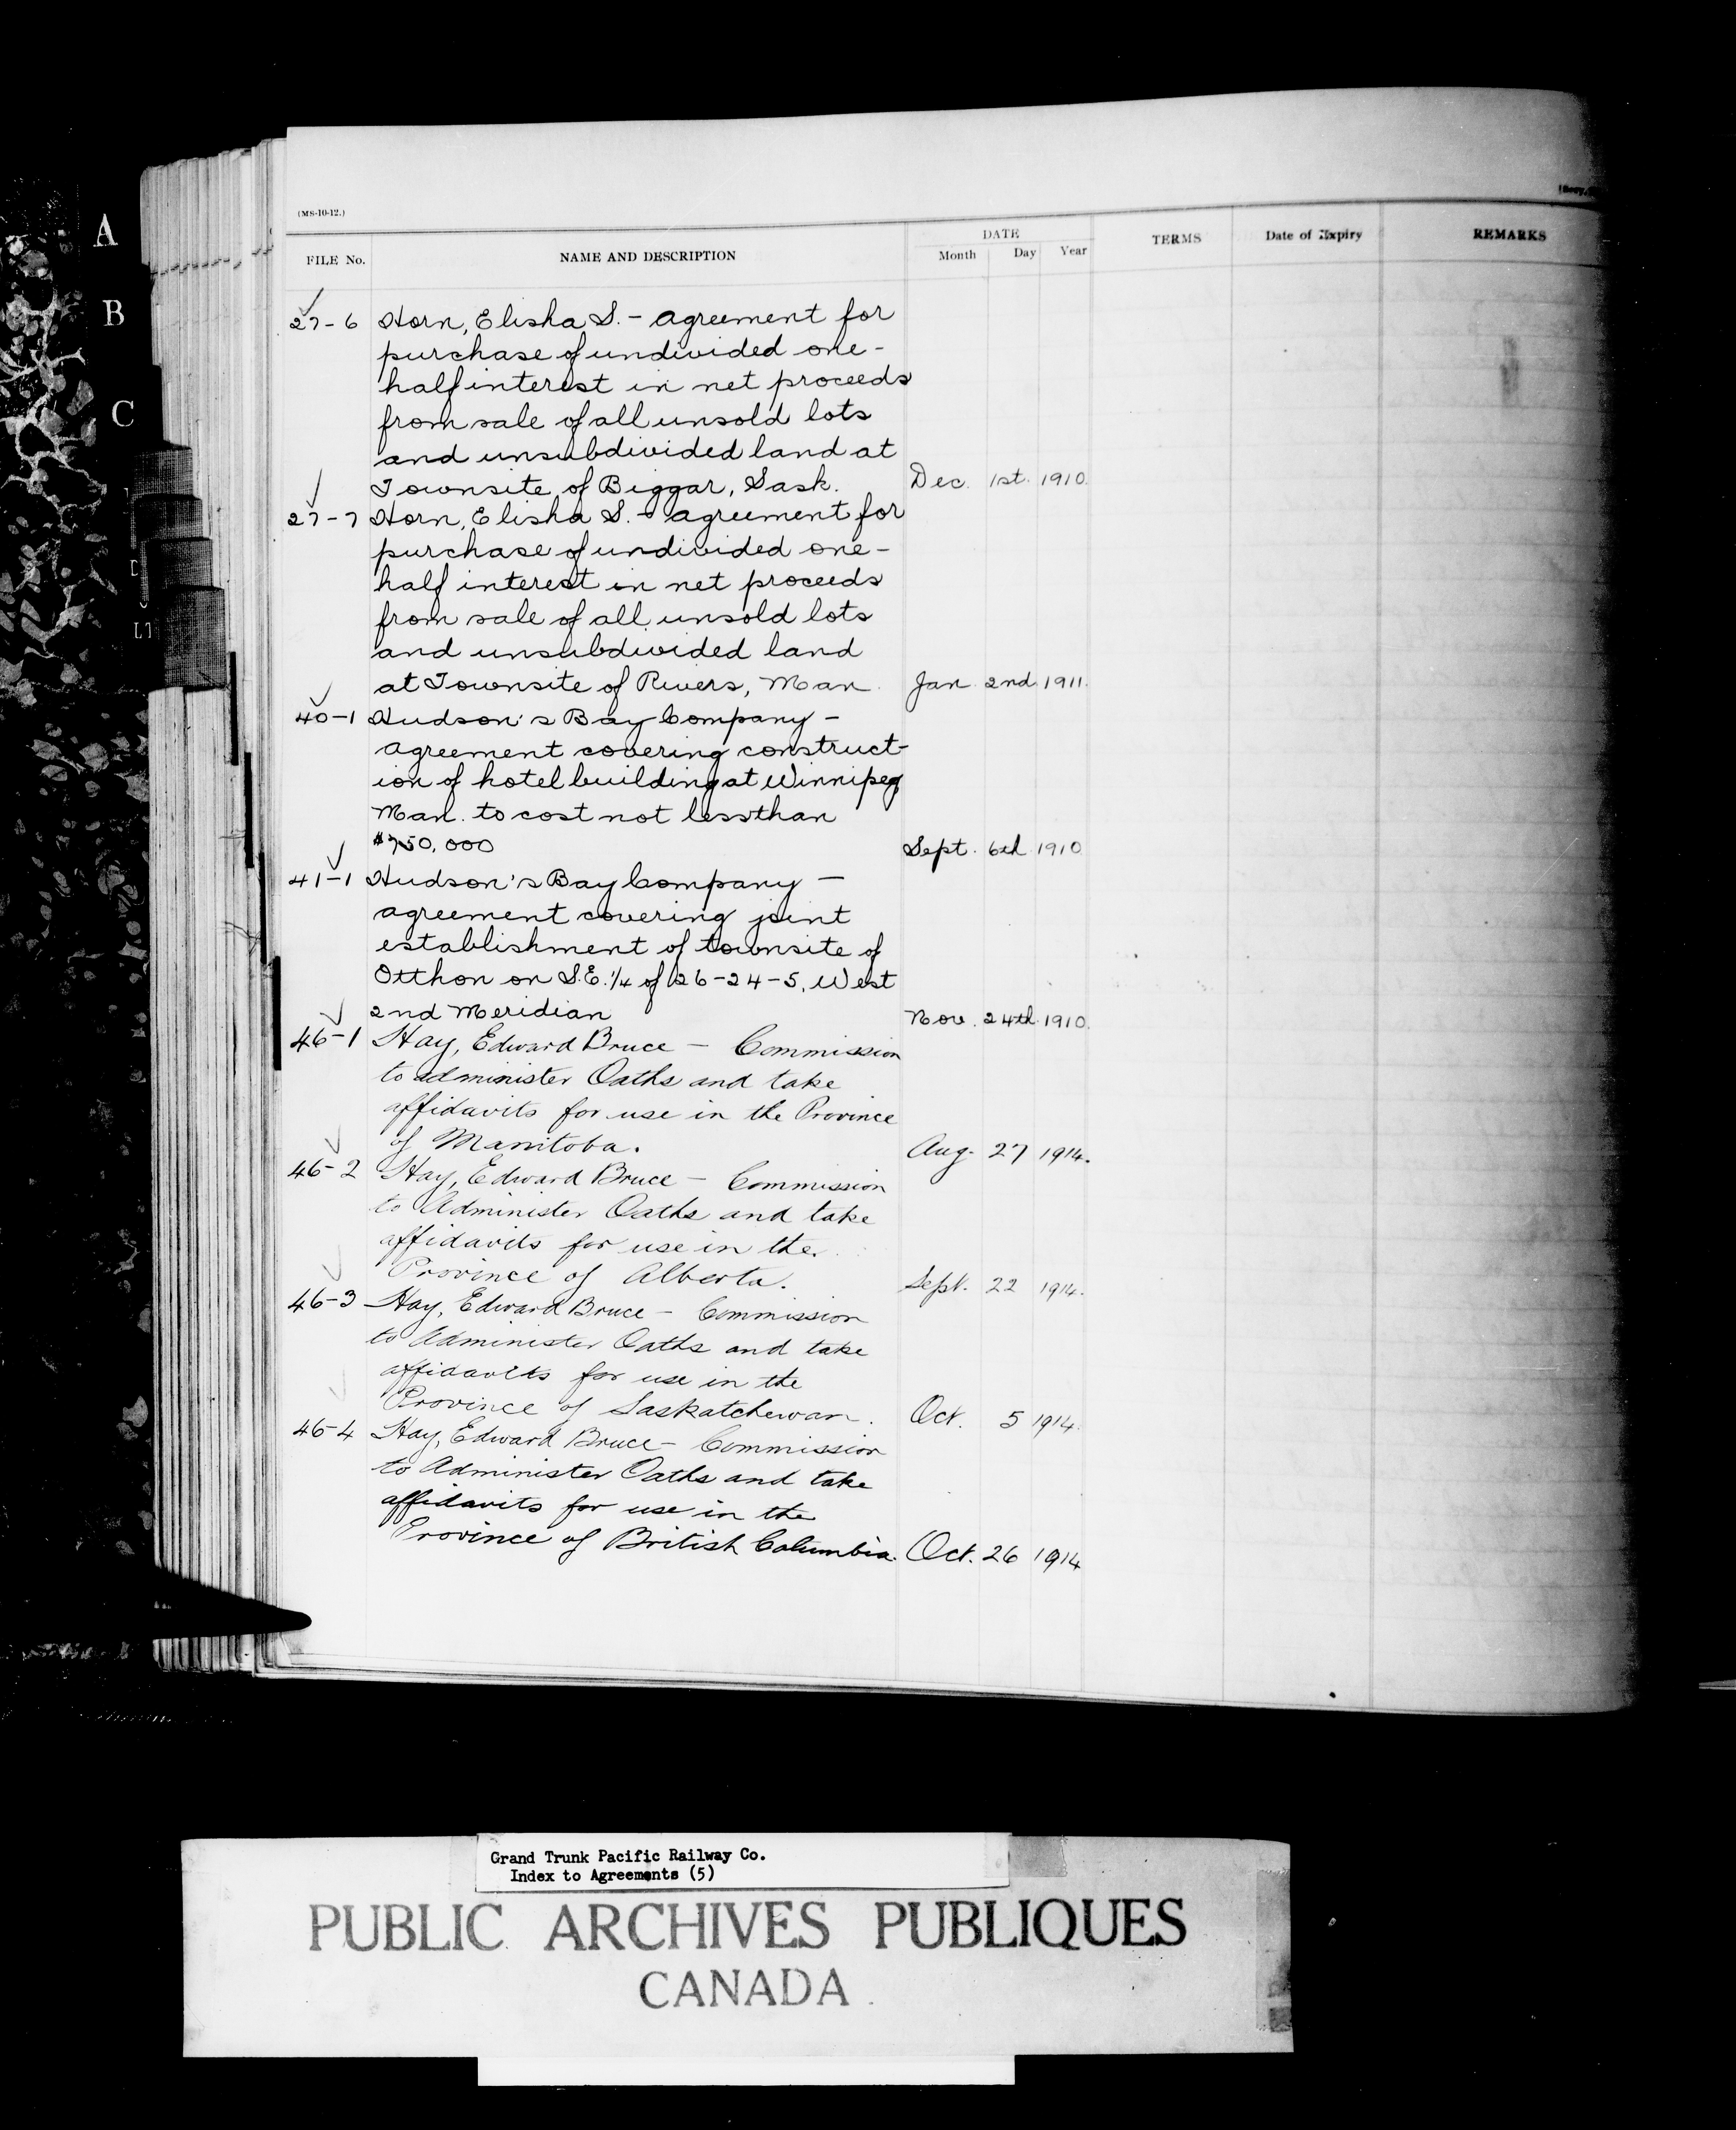 A
B
C
(MS-10-12.)
FILE No. NAME AND DESCRIPTION DATE Month Day Year TERMS Date of Expiry REMARKS
27-6 Horn, Elisha S. - agreement for
purchase of undivided one-
half interest in net proceeds
from sale of all unsold lots
and unsubdivided land at
Townsite of Biggar, Sask. Dec. 1st. 1910.
27-7 Horn, Elisha S. - agreement for
purchase of undivided one-
half interest in net proceeds
from sale of all unsold lots
and unsubdivided land
at Townsite of Rivers, Man. Jan. 2nd 1911.
40-1 Hudson's Bay Company -
agreement covering construct-
ion of hotel building at Winnipeg
Man. to cost not less than
$750,000 Sept. 6th 1910
41-1 Hudson's Bay Company -
agreement covering joint
establishment of townsite of
Otthon on S.E. 1/4 of 26-24-5, West
2nd Meridian Nov. 24th 1910.
46-1 Hay, Edward Bruce - Commission
to administer Oaths and take
affidavits for use in the Province
of Manitoba. Aug. 27 1914.
46-2 Hay, Edward Bruce - Commission
to Administer Oaths and take
affidavits for use in the
Province of Alberta. Sept. 22 1914.
46-3 Hay, Edward Bruce - Commission
to Administer Oaths and take
affidavits for use in the
Province of Saskatchewan. Oct. 5 1914.
46-4 Hay, Edward Bruce - Commission
to Administer Oaths and take
affidavits for use in the
Province of British Columbia. Oct. 26 1914
Grand Trunk Pacific Railway Co.
Index to Agreements (5)
PUBLIC ARCHIVES PUBLIQUES
CANADA